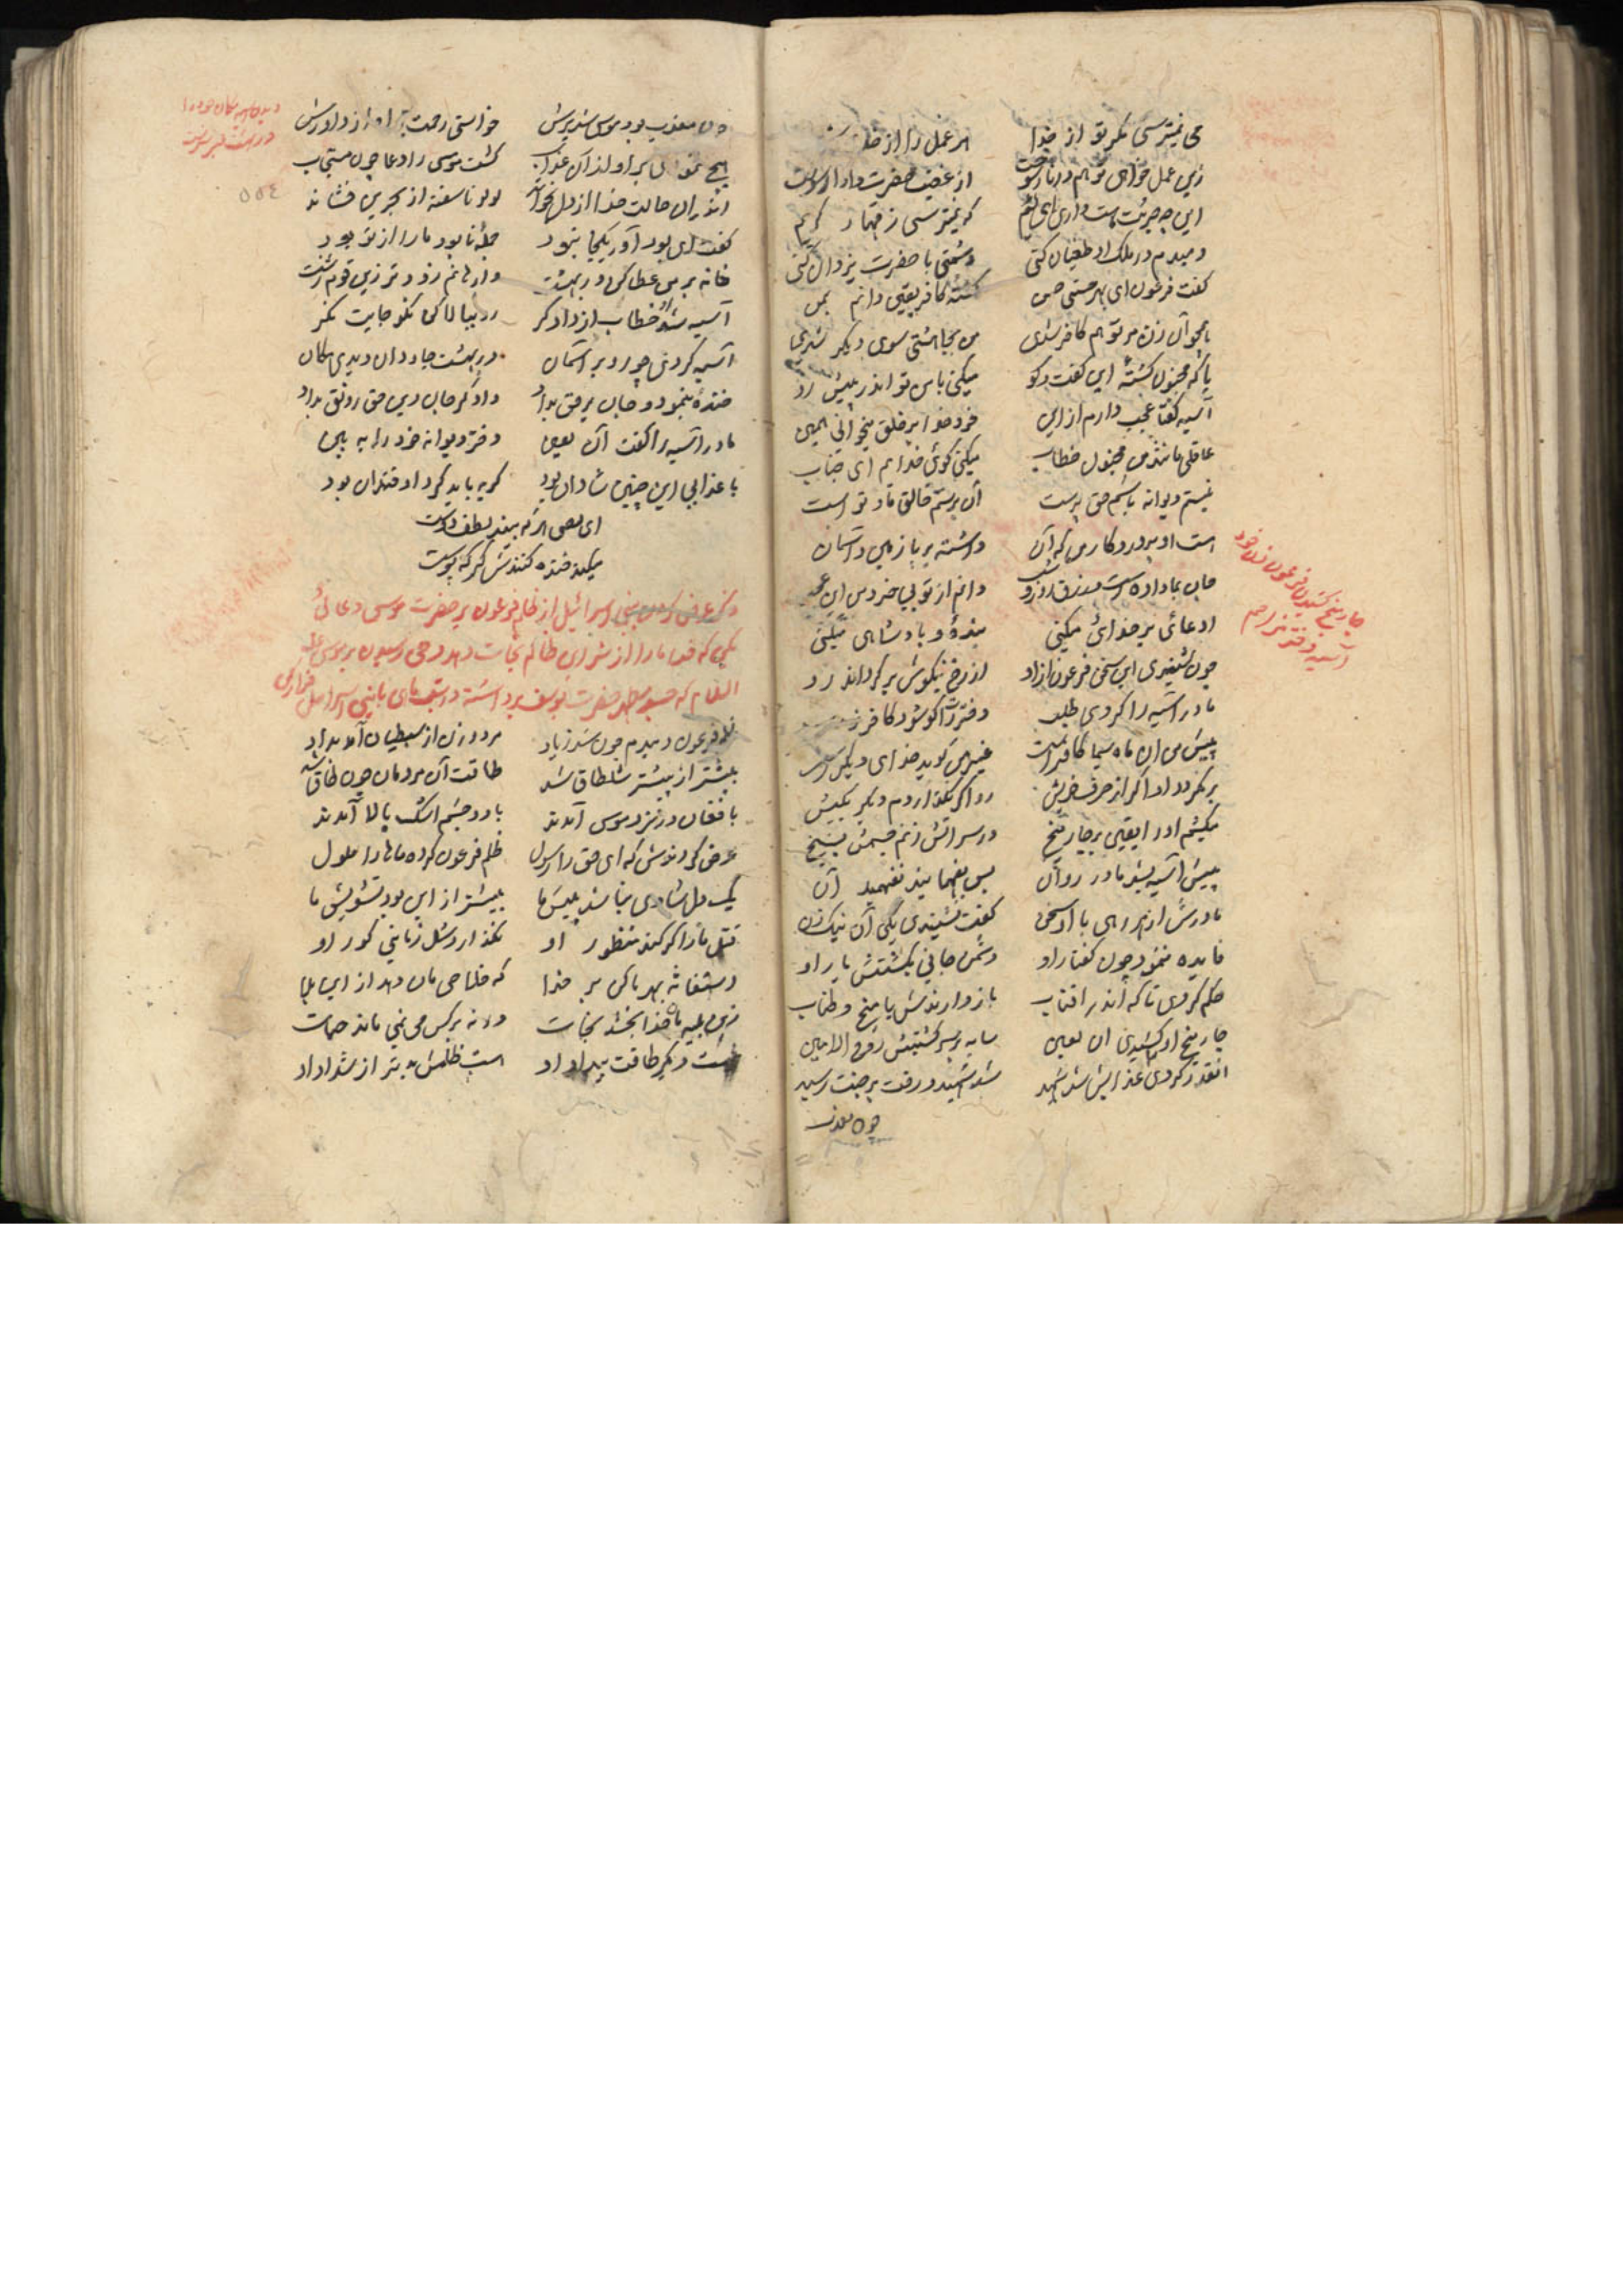 می نیترسی مگر تو از خدا
زین عمل خواهی تو هم در نار سوخت از غضب حضرت
این چه جرئت هست داری ای لئیم که نیترسی ز قهار کریم
دمبدم در ملک او طغیان کنی دشمنی با حضرت یزدان کنی
گفت فرعون ای بهر حسنی حسن گشته کافر یقین دانم بمن
همچو آن زن مر تو هم کافر شدی من کجا هستی سوی دیگر شدی
یا که مجنون گشتهٔ این گفت و گو میکنی با من تو اندر پیش رو
آسیه گفتا عجب دارم ازین خود خدا بر خلق میخوانی همین
عاقلی مانند من مجنون خطاب میکنی گوئی خدایم ای جناب
نیستم دیوانه باشم حق پرست آن پرستم خالق ما و تو است
هست او پروردگار من که آن داشته بر پا زمین و آسمان
جان بما داده است و رزق روز و شب دانم از تو بی خرد من این عجب
ادعائی بر خدائی میکنی بنده و پادشاهی میکنی
چون شنیدی این سخن فرعون ازاد از رخ نیکوش بر گرداند رو
مادر آسیه را کردی طلب دخترت را گو شود کافر
پیش من این ماه سیما کافر است غیر من گوید خدای دیگر است
بر نگردد او اگر از حرف خویش
میکشم او را یقین بر چار میخ در سر آتش زنم جسمش بسیخ
پیش آسیه بشد مادر روان پس بفهمانید نفهمید آن
مادرش از هر رهی با او سخن گفت نشنیدی یکی آن نیک زن
فایده ننمود چون گفتار او دشمن جانی بگشتش یار او
حکم کردی تا که اندر آفتاب باز دارندش با میخ و طناب
چار میخ او کشیدی آن لعین سایه بر سر گشتیش روح الامین
آنقدر کردی عذابش شد شهید شد شهید و رفت بر جنت رسید
چون معذب
چار میخ کشیدن فرعون زن خود
آسیه دختر مزاحم
چون معذب بود موسی شد برش خواستی رحمت برای از داورش
هیچ ننمودی بر او از آن عذاب گشت موسی را دعا چون مستجاب
اندران حالت خدا از دل بخواند لولو ناسفته از بحرین فشاند
گفت ای بود آور یکجا نبود جمله نابود ما را از تو بود
خانه بر من عطا کن در بهشت وارهانم زود تر زین قوم زشت
آسیه شد خطاب از دادگر رو ببالا کن نکو جایت نگر
آسیه کردی چو رو بر آسمان در بهشت جاودان دیدی مکان
خندهٔ بنمود و جان بر حق بداد داد گر جان دین حق رونق بداد
مادر آسیه را گفت آن لعین دختر دیوانه خود را به بین
با عذابی این چنین شادان بود گریه باید کرد او خندان بود
ای لعین هر که بیند لطف دوست
میکند خنده کنندش گر که پوست
ذکر عرض کردن بنی اسرائیل از ظلم فرعون بر حضرت موسی دعائی
بکن که خدا ما را از شر این ظالم نجات دهد وحی رسیدن بر موسی علیه
السلام که جسد مطهر حضرت یوسف برداشته در شب های با بنی اسرائیل فرار کن
ظلم فرعون دمبدم چون شد زیاد مرد و زن از سبطیان آمد بداد
بیشتر از پیشتر شلطاق شد طاقت آن مردمان چون طاق شد
با فغان در نزد موسی آمدند با دو چشم اشک پالا آمدند
عرض کردندش که ای حق را رسول ظلم فرعون کرده ماها را ملول
یک دل شادی نباشد پیش ما بیشتر از این بود تشویش ما
قتل ما را گر کند منظور او نگذارد نسل زمانی کور او
استغاثه بهر ما کن بر خدا که خلاصی مان دهد از این بلا
زین بلیه ما خدا بخشد نجات ورنه بر کس می نمی ماند حیات
نیست دیگر طاقت بیداد او هست ظلمش بدتر از شداد او
دیدن آسیه مکان خود را
در بهشت عنبر سرشت
٥٥٤